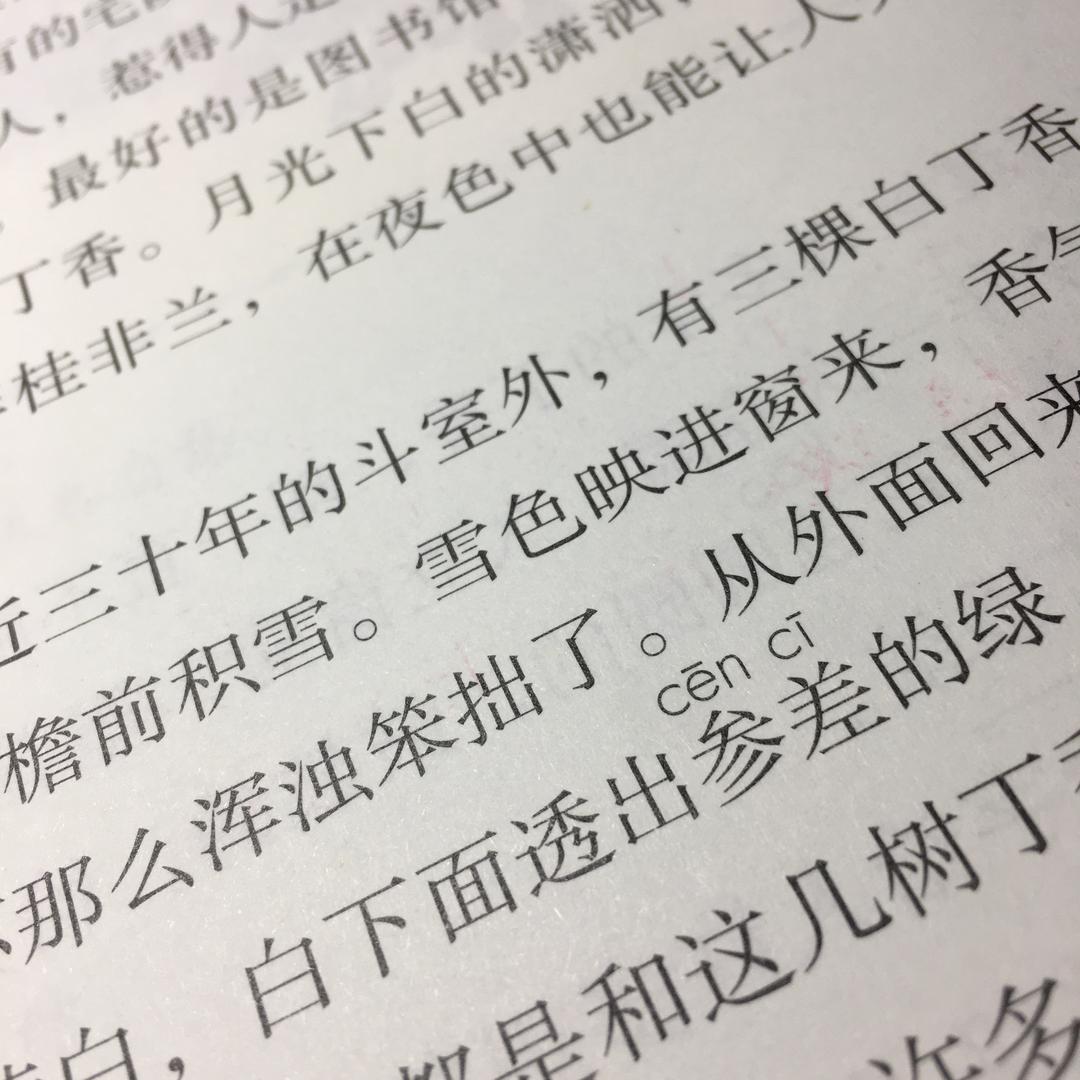 的宅
人，惹得人
最好的是图书馆
丁香。月光下白的潇洒
桂非兰，在夜色中也能让人
近三十年的斗室外，有三棵白丁香
檐前积雪。雪色映进窗来，香气
那么浑浊笨拙了。从外面回来
cēn cī
白，白下面透出参差的绿
都是和这几树丁香
许多